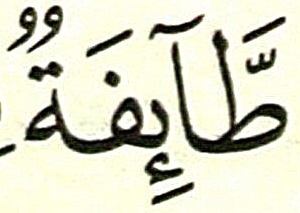 طَّآئِفَةٌ